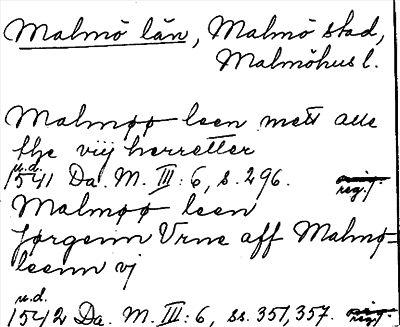 Malmö län, Malmö stad,
Malmöhus l.
Malmøø leen mett alle
the viij herretter
u.d.
1541 Da. M. III: 6, s. 296. regist.
Malmøø leen
Jørgenn Vrne aff Malmø-
leenn vj
u.d.
1542 Da. M. III: 6, ss. 351, 357.